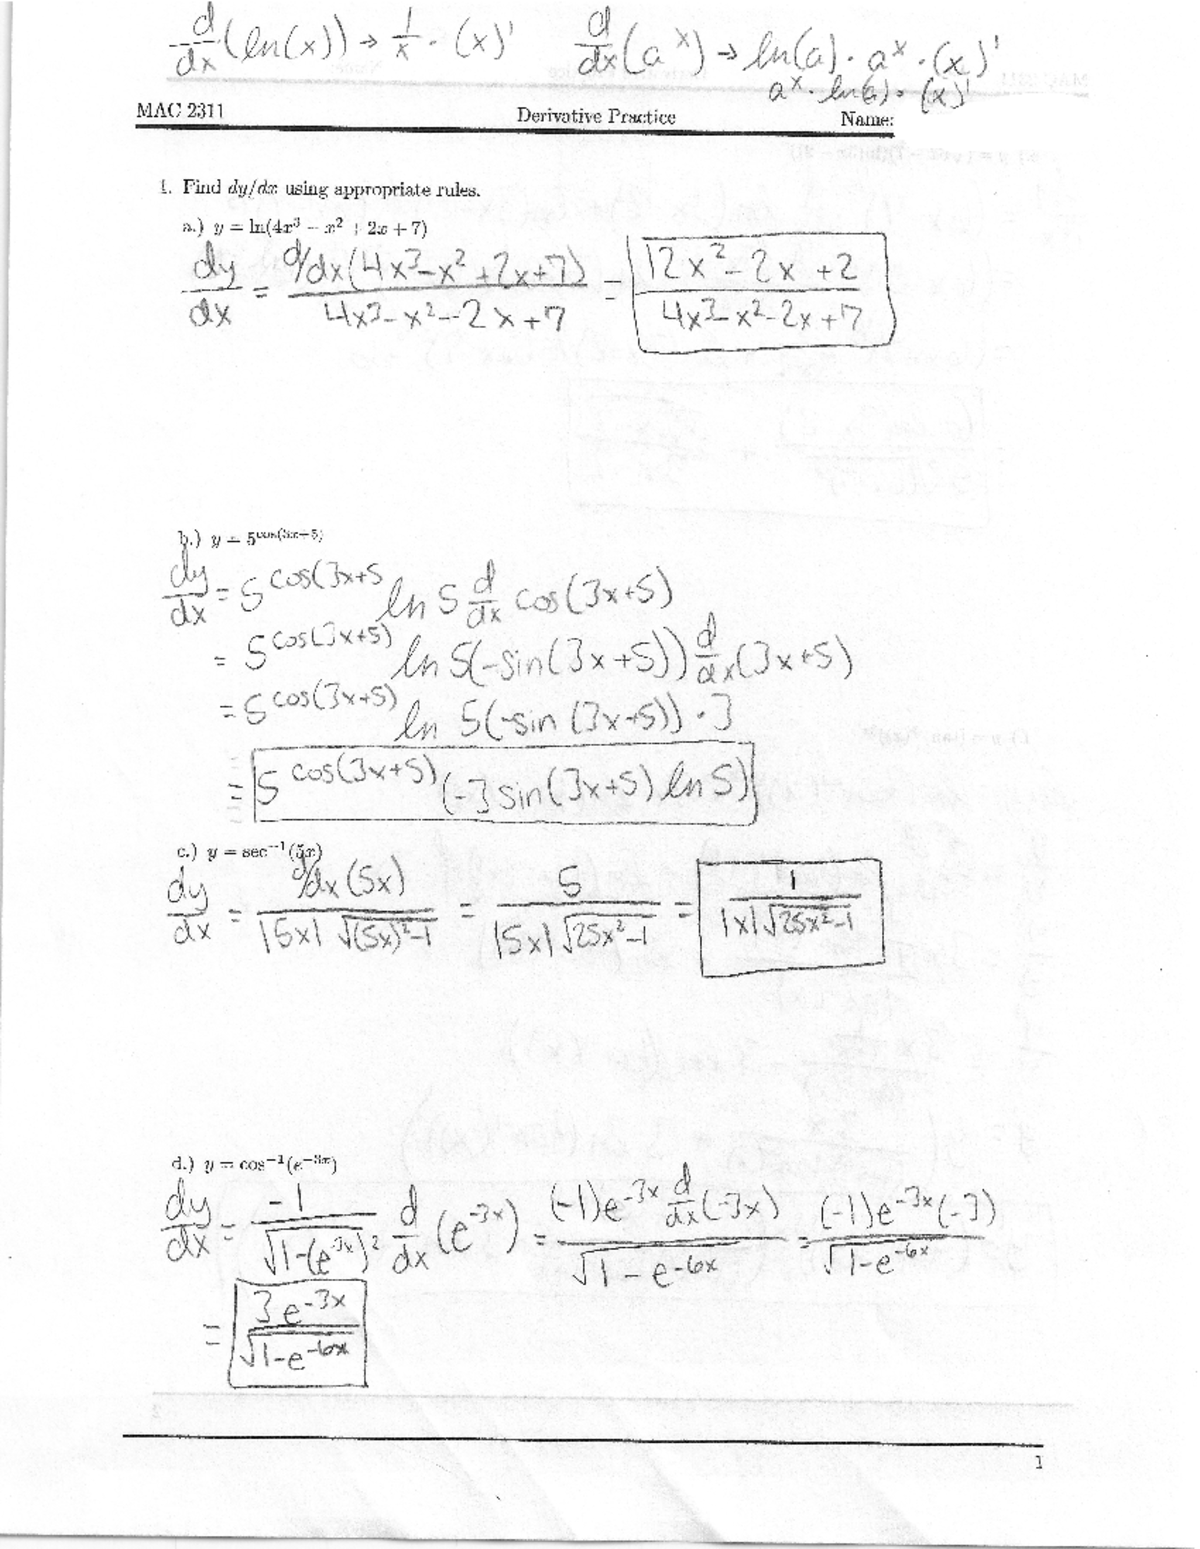 d/dx (ln(x)) → 1/x · (x)'   d/dx (a^x) → ln(a) · a^x · (x)'
a^x · ln(a) · (x)'
MAC 2311 Derivative Practice Name:
1. Find dy/dx using appropriate rules.
a.) y = ln(4x³ − x² + 2x + 7)
dy/dx = d/dx(4x³−x²+2x+7) / 4x³−x²−2x+7 = 12x²−2x+2 / 4x³−x²−2x+7
b.) y = 5^cos(3x+5)
dy/dx = 5^cos(3x+5 ln 5 d/dx cos(3x+5)
= 5^cos(3x+5) ln 5(−sin(3x+5)) d/dx(3x+5)
= 5^cos(3x+5) ln 5(−sin(3x+5)) · 3
= 5^cos(3x+5) (−3 sin(3x+5) ln 5)
c.) y = sec⁻¹(5x)
dy/dx = d/dx(5x) / |5x| √(5x)²−1 = 5 / |5x| √25x²−1 = 1 / |x| √25x²−1
d.) y = cos⁻¹(e^−3x)
dy/dx = −1 / √1−(e^−3x)² d/dx (e^−3x) = (−1)e^−3x d/dx(−3x) / √1−e^−6x = (−1)e^−3x(−3) / √1−e^−6x
= 3e^−3x / √1−e^−6x
1